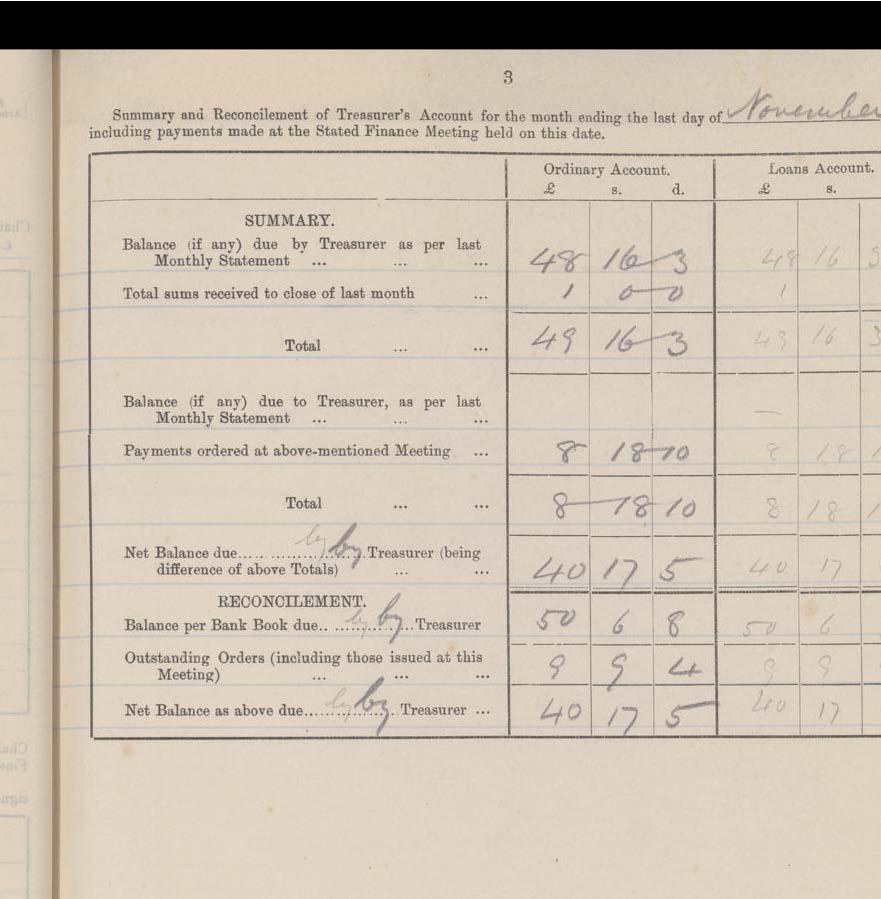 3
Summary and Reconcilement of Treasurer's Account for the month ending the last day of November
including payments made at the Stated Finance Meeting held on this date.
Ordinary Account. Loans Account.
£ s. d. £ s.
SUMMARY.
Balance (if any) due by Treasurer as per last
Monthly Statement ... ... ... 48 16 3 48 16 3
Total sums received to close of last month ... 1 0 0 1
Total ... ... 49 16 3 49 16 3
Balance (if any) due to Treasurer, as per last
Monthly Statement ... ... ... —
Payments ordered at above-mentioned Meeting ... 8 18 10 8 18 1
Total ... ... 8 18 10 8 18 1
Net Balance due..... by by Treasurer (being
difference of above Totals) ... ... 40 17 5 40 17
RECONCILEMENT.
Balance per Bank Book due.. by by Treasurer 50 6 8 50 6
Outstanding Orders (including those issued at this
Meeting) ... ... ... 9 9 4 9 9
Net Balance as above due..... by by Treasurer ... 40 17 5 40 17